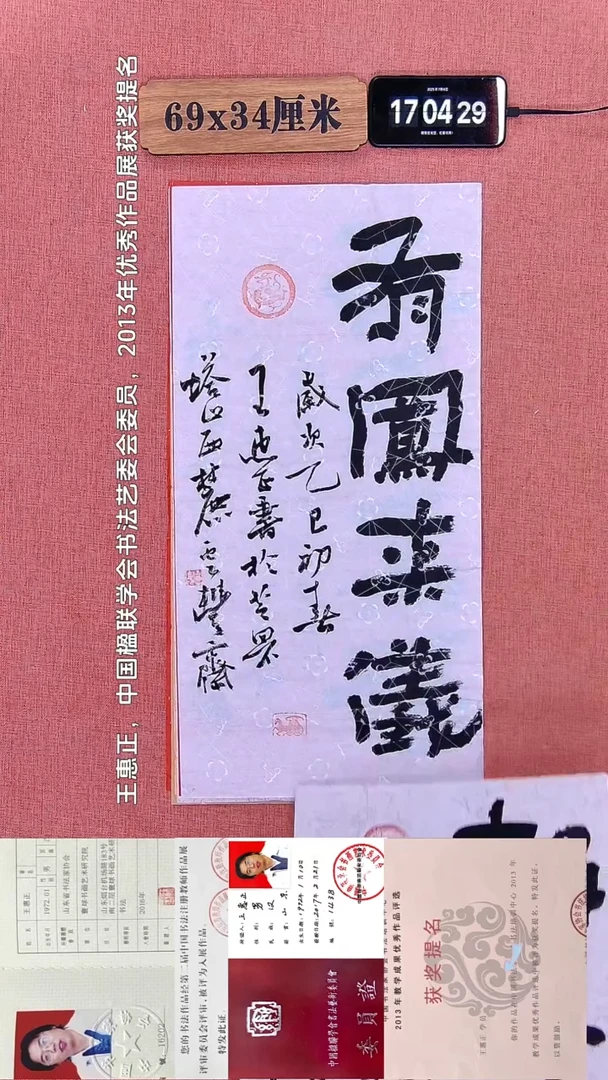 69x34厘米
17 04 29
王惠正，中国楹联学会书法艺委会委员，2013年优秀作品展获奖提名
有鳳来儀
歲次乙巳初春
王惠正書於芝罘
塔山西麓雲鶴齋
王惠正
1972.01
男
山东省书法家协会
2016年
您的书法作品经第二届中国书法注册教师作品展
评审委员会评审，被评为入展作品。
特发此证
王惠正
男
汉
山东
1238
中国楹联学会书法艺术委员会
委員證
2013年教学成果优秀作品评选
获奖提名
王惠正 学员
以资鼓励。